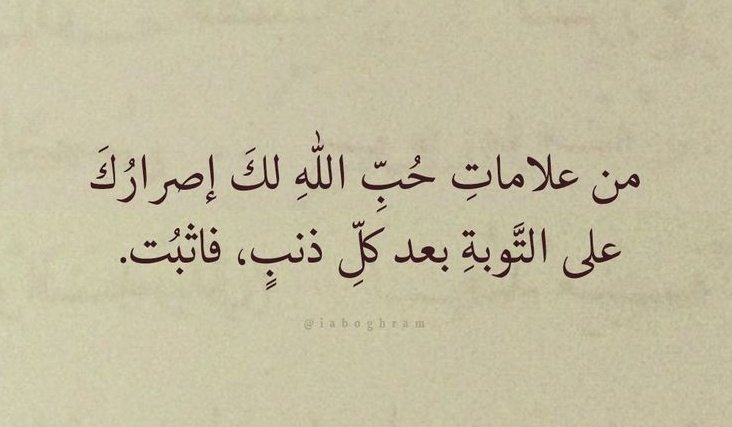 من علاماتِ حُبِّ اللّٰهِ لكَ إصرارُكَ
على التَّوبةِ بعد كلِّ ذنبٍ، فاثبُت.
@iaboghram